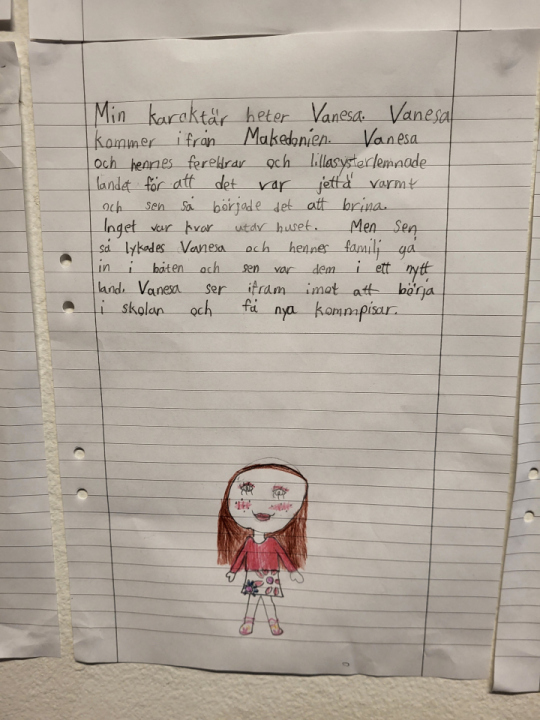 Min karaktär heter Vanesa. Vanesa
kommer ifrån Makedonien. Vanesa
och hennes fereldrar och lillasyster lemnade
landet för att det var jättä varmt
och sen så började det att brina.
Inget var kvar utav huset. Men sen
så lykades Vanesa och hennes familj gå
in i båten och sen var dem i ett nytt
land. Vanesa ser ifram imot att börja
i skolan och få nya kommpisar.